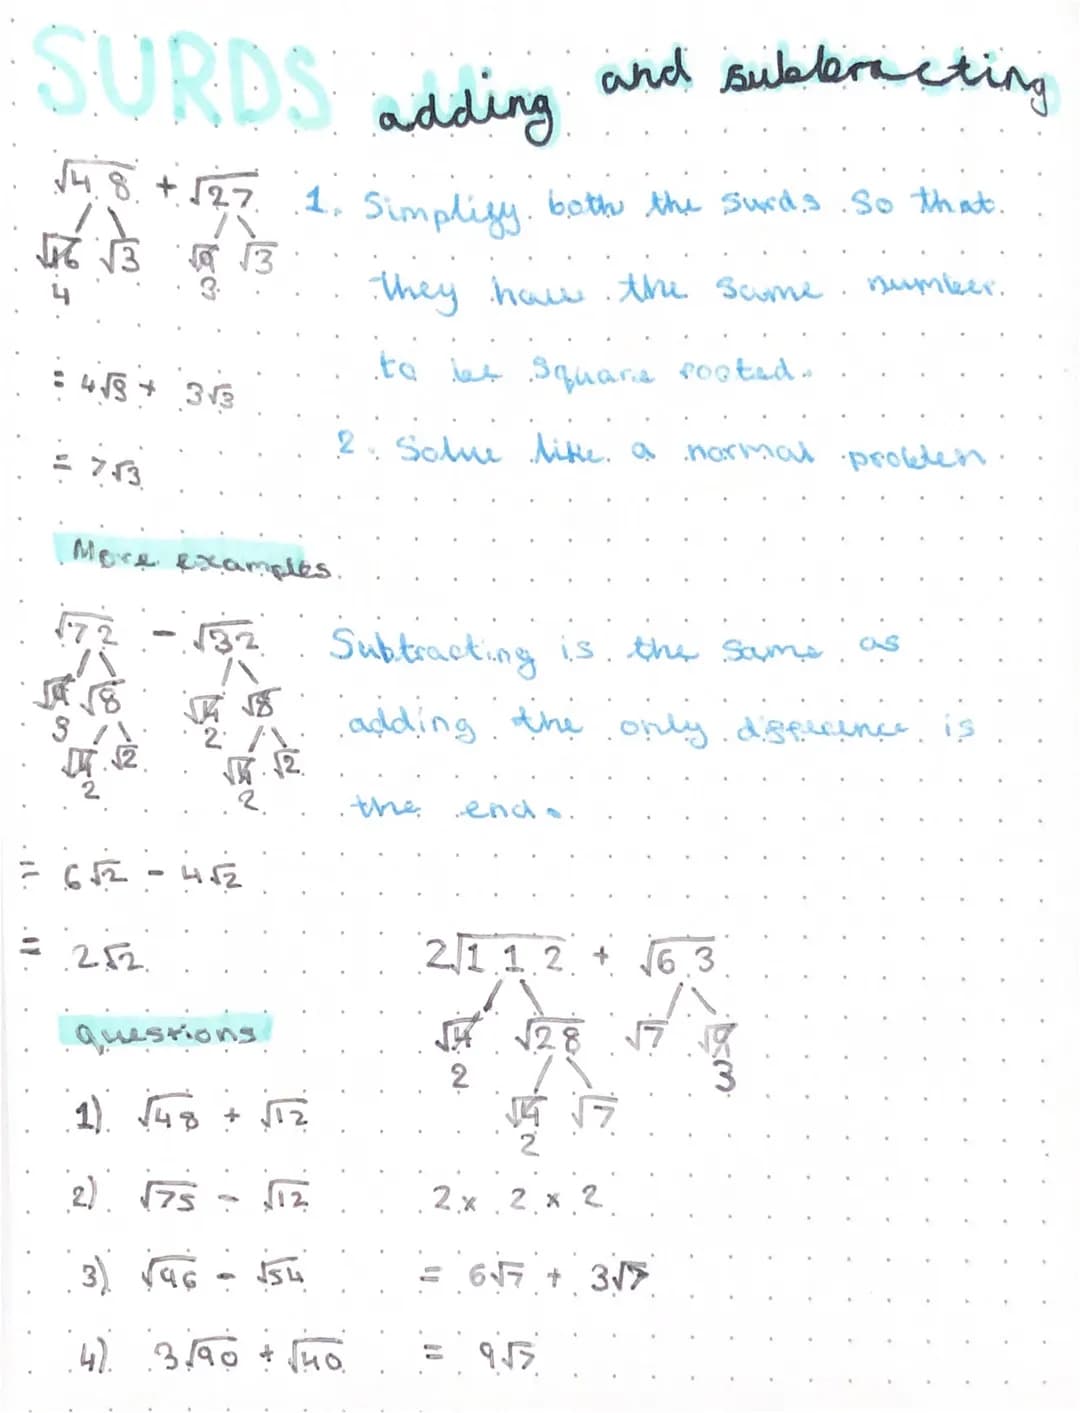 SURDS adding and subtracting
√48 + √27
√16 √3 √9 √3
4 3
= 4√3 + 3√3
= 7√3
1. Simplify both the surds so that
they have the same number
to be square rooted.
2. Solve like a normal problem
More examples
√72 - √32
√9 √8 √4 √8
3 2
√4 √2 √4 √2
2 2
= 6√2 - 4√2
= 2√2
Subtracting is the same as
adding the only difference is
the end.
2√112 + √63
√4 √28 √7 √9
2 3
√4 √7
2
2 x 2 x 2
= 6√7 + 3√7
= 9√7
questions
1) √48 + √12
2) √75 - √12
3) √96 - √54
4) 3√90 + √40